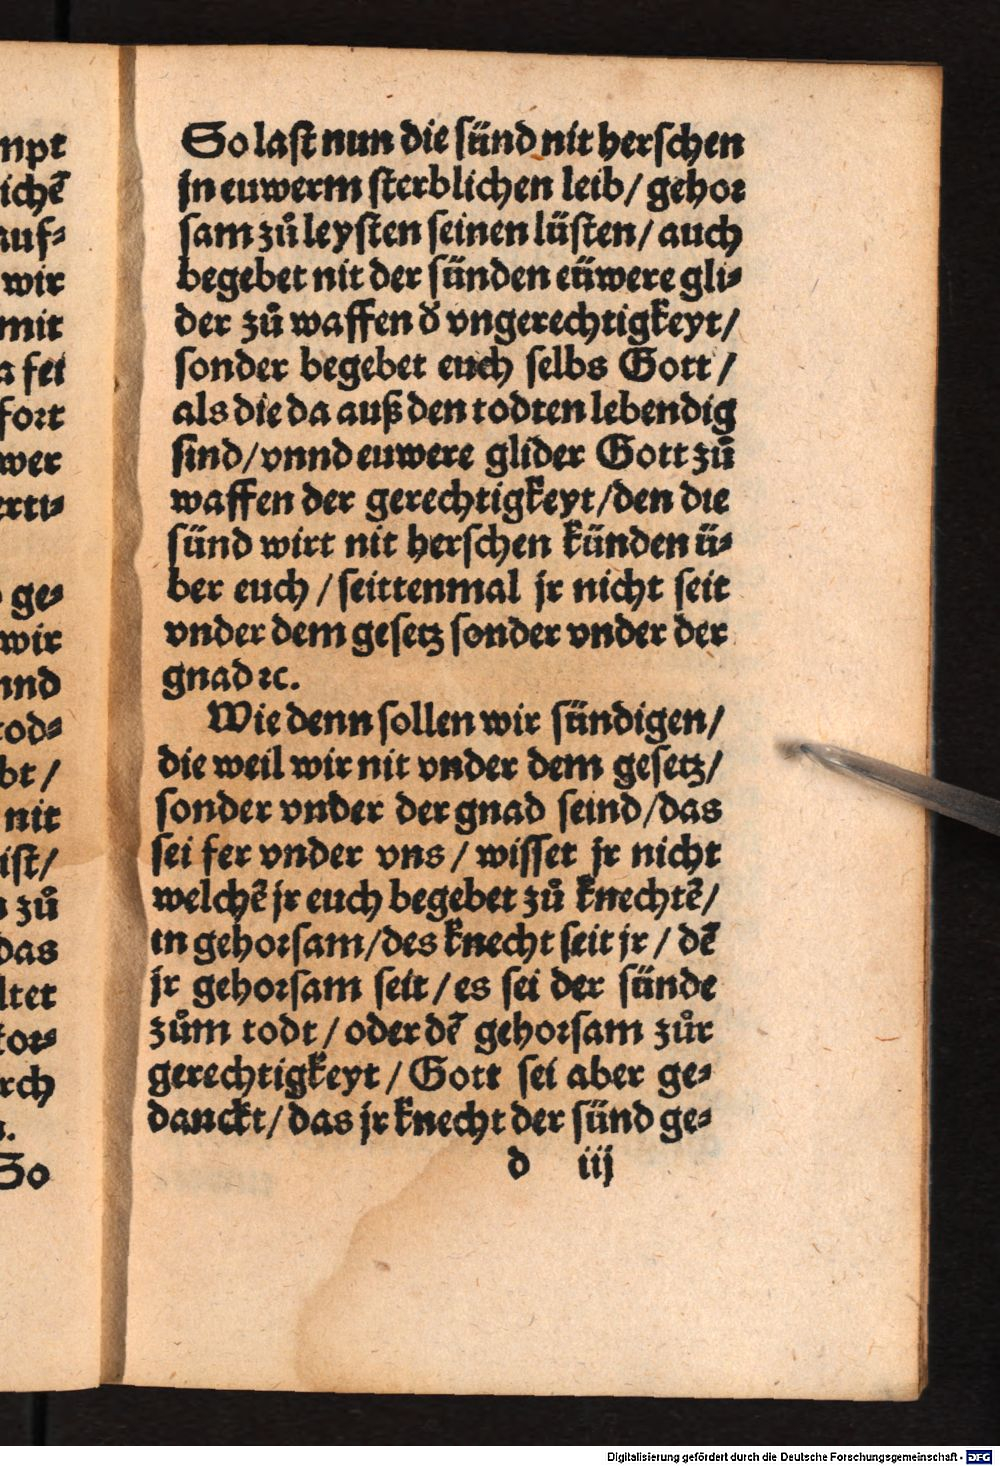 npt
ichẽ
auf⸗
wir
mit
a fei
fort
wer
erti⸗
ge⸗
wir
nnd
tod⸗
bt /
nit
ist/
zů
das
ltet
tor⸗
rch
So
So last nun die sünd nit herschen
jn euwerm sterblichen leib/ gehor
sam zů leysten seinen lüsten/ auch
begebet nit der sünden eüwere gli⸗
der zů waffen d̄ vngerechtigkeyt/
sonder begebet euch selbs Gott /
als die da auß den todten lebendig
sind/vnnd euwere glider Gott zů
waffen der gerechtigkeyt/den die
sünd wirt nit herschen künden ü⸗
ber euch / seittenmal jr nicht seit
vnder dem gesetz sonder vnder der
gnad ꝛc.
Wie denn sollen wir sündigen/
die weil wir nit vnder dem gesetz/
sonder vnder der gnad seind/das
sei fer vnder vns / wisset jr nicht
welchẽ jr euch begebet zů knechtẽ/
in gehorsam/des knecht seit jr / dẽ
jr gehorsam seit / es sei der sünde
zům todt / oder dẽ gehorsam zůr
gerechtigkeyt / Gott sei aber ge⸗
danckt/ das jr knecht der sünd ge⸗
d iij
Digitalisierung gefördert durch die Deutsche Forschungsgemeinschaft - DFG